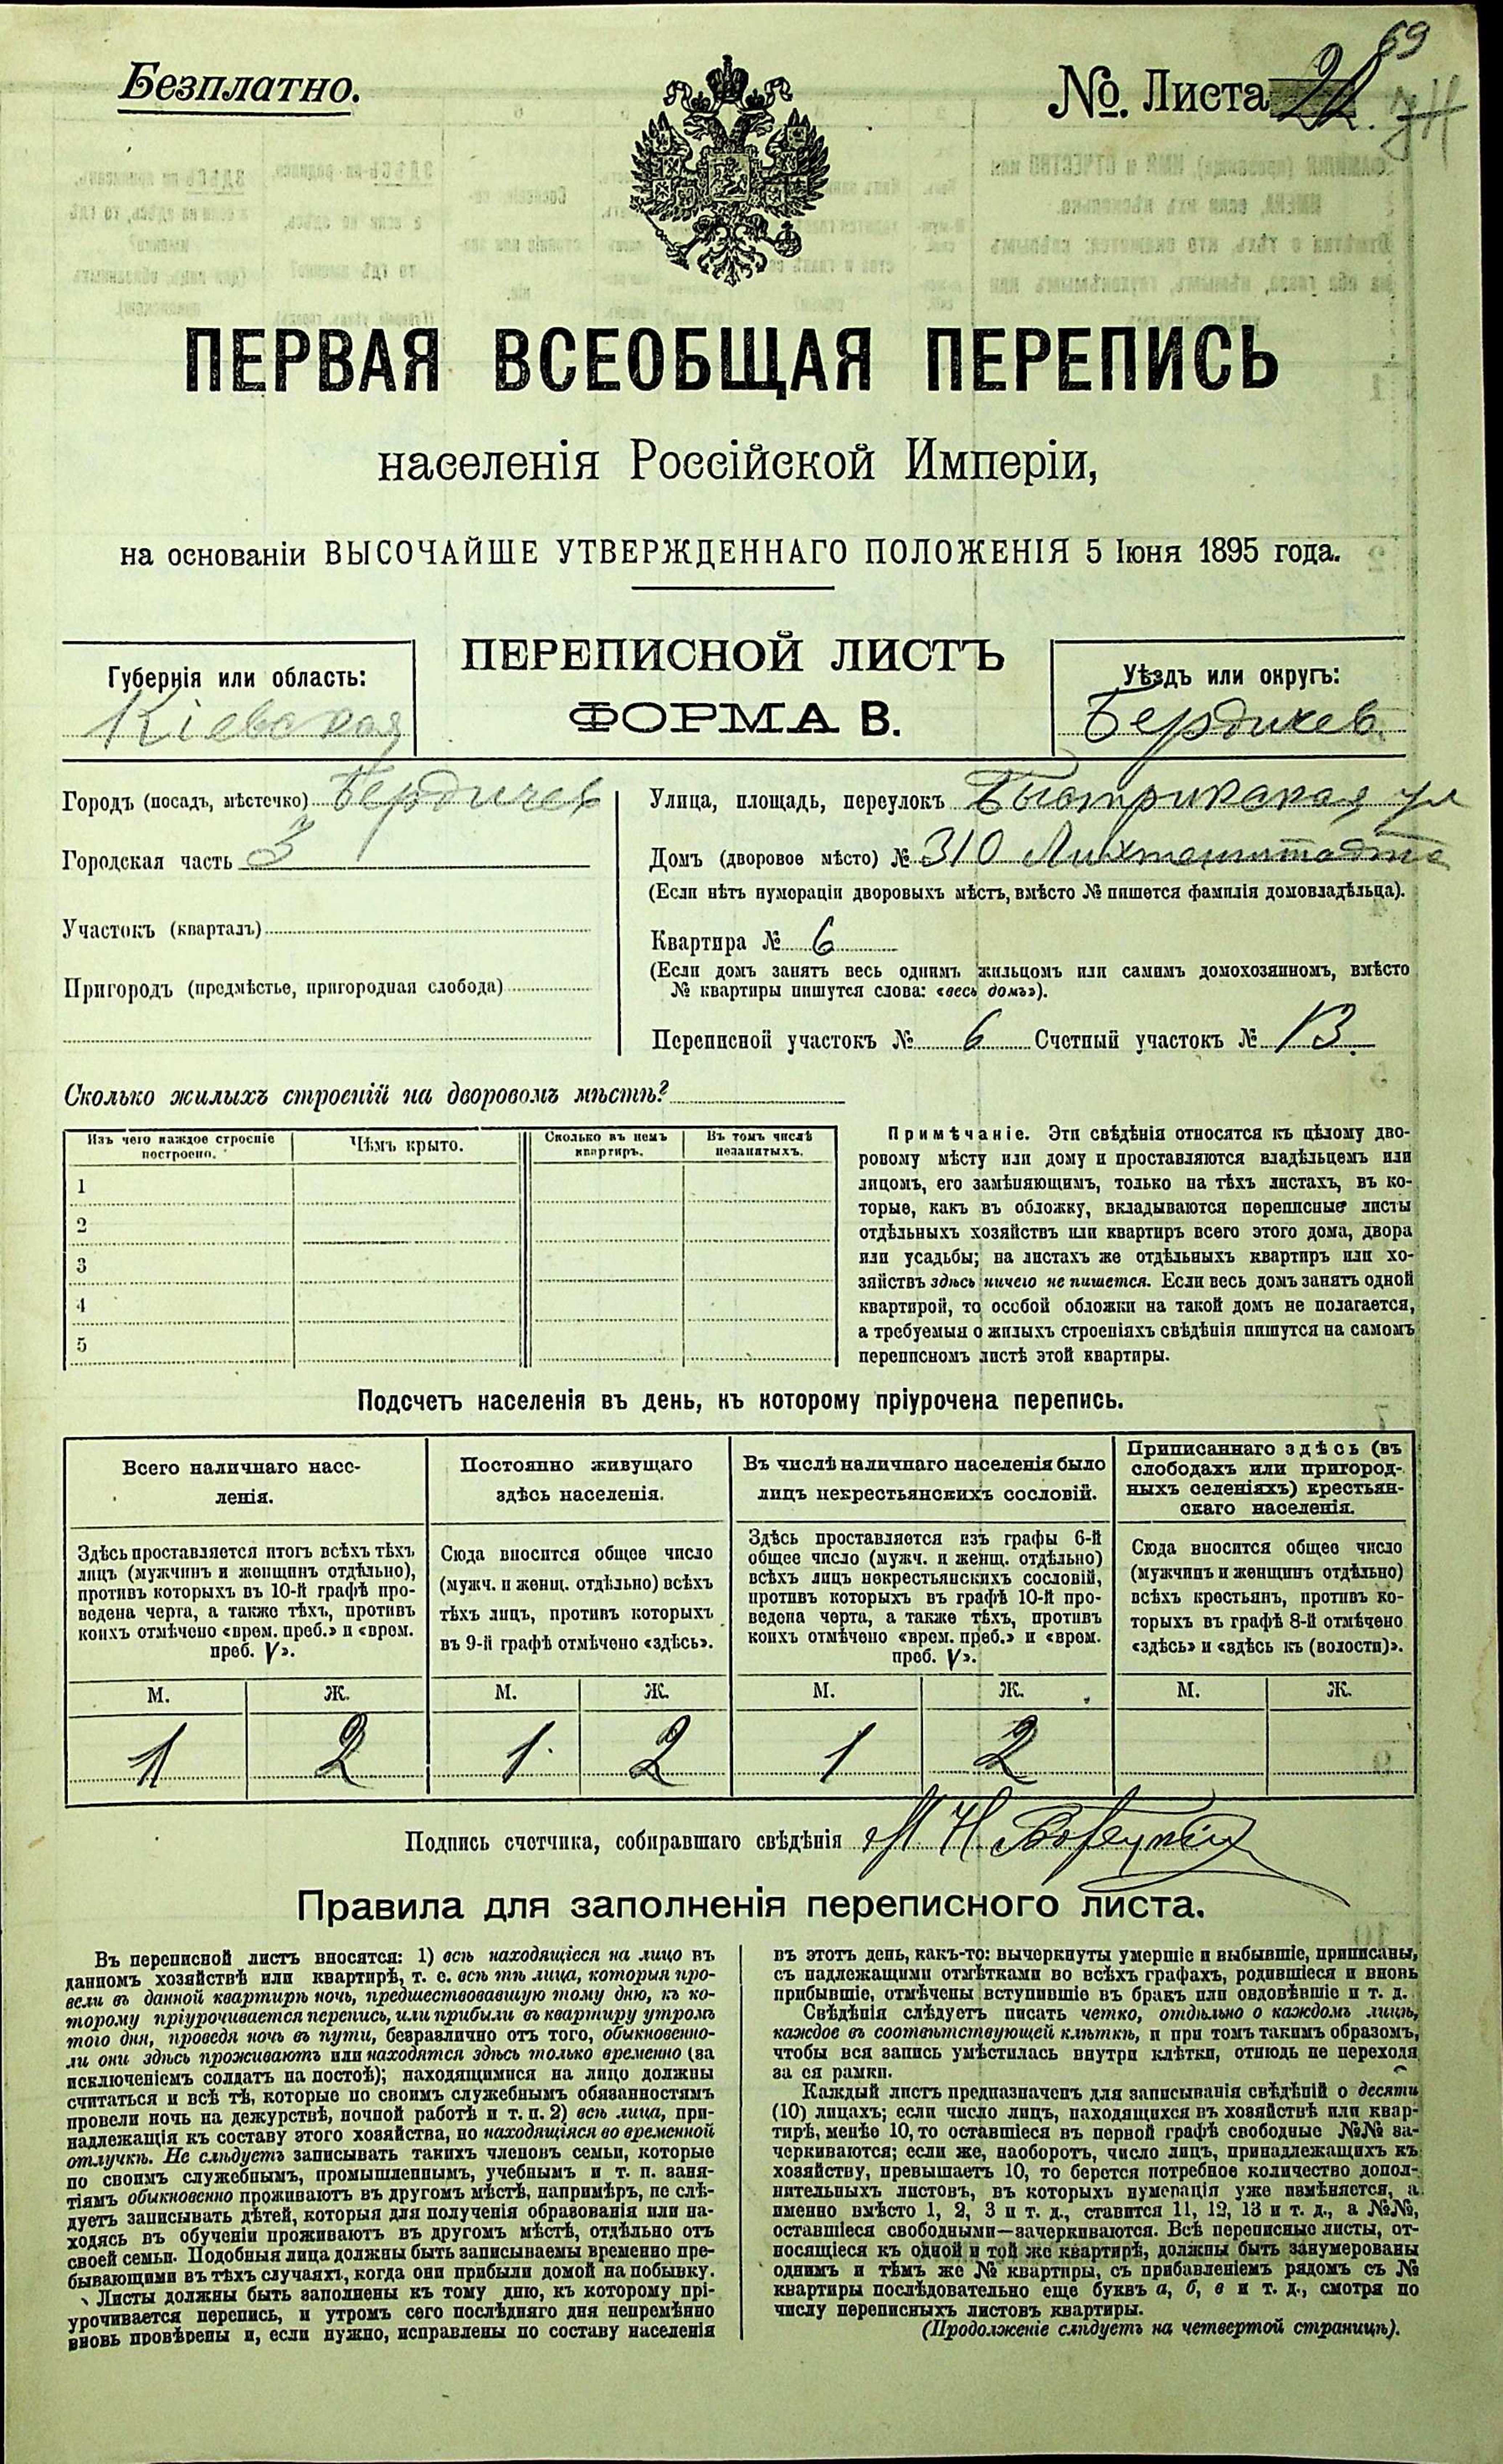 Безплатно.
№. Листа
69
ПЕРВАЯ ВСЕОБЩАЯ ПЕРЕПИСЬ
населенія Россійской Имперіи,
на основаніи ВЫСОЧАЙШЕ УТВЕРЖДЕННАГО ПОЛОЖЕНІЯ 5 Іюня 1895 года.
ПЕРЕПИСНОЙ ЛИСТЪ
ФОРМА В.
Губернія или область:
Кіевская
Уѣздъ или округъ:
Бердичев
Городъ (посадъ, мѣстечко) Бердичев
Городская часть 3
Участокъ (кварталъ)
Пригородъ (предмѣстье, пригородная слобода)
Улица, площадь, переулокъ Быстрикская ул
Домъ (дворовое мѣсто) № 310 Лихтенштадта
(Если нѣтъ нумераціи дворовыхъ мѣстъ, вмѣсто № пишется фамилія домовладѣльца).
Квартира № 6
(Если домъ занятъ весь однимъ жильцомъ или самимъ домохозяиномъ, вмѣсто
№ квартиры пишутся слова: «весь домъ»).
Переписной участокъ № 6 Счетный участокъ № 13.
Сколько жилыхъ строеній на дворовомъ мѣстѣ?
Изъ чего каждое строеніе
построено.
Чѣмъ крыто.
Сколько въ немъ
квартиръ.
Въ томъ числѣ
незанятыхъ.
1
2
3
4
5
Примѣчаніе. Эти свѣдѣнія относятся къ цѣлому дво-
ровому мѣсту или дому и проставляются владѣльцемъ или
лицомъ, его замѣняющимъ, только на тѣхъ листахъ, въ ко-
торые, какъ въ обложку, вкладываются переписные листы
отдѣльныхъ хозяйствъ или квартиръ всего этого дома, двора
или усадьбы; на листахъ же отдѣльныхъ квартиръ или хо-
зяйствъ здѣсь ничего не пишется. Если весь домъ занятъ одной
квартирой, то особой обложки на такой домъ не полагается,
а требуемыя о жилыхъ строеніяхъ свѣдѣнія пишутся на самомъ
переписномъ листѣ этой квартиры.
Подсчетъ населенія въ день, къ которому пріурочена перепись.
Всего наличнаго насе-
ленія.
Здѣсь проставляется итогъ всѣхъ тѣхъ
лицъ (мужчинъ и женщинъ отдѣльно),
противъ которыхъ въ 10-й графѣ про-
ведена черта, а также тѣхъ, противъ
коихъ отмѣчено «врем. преб.» и «врем.
преб. V».
Постоянно живущаго
здѣсь населенія.
Сюда вносится общее число
(мужч. и женщ. отдѣльно) всѣхъ
тѣхъ лицъ, противъ которыхъ
въ 9-й графѣ отмѣчено «здѣсь».
Въ числѣ наличнаго населенія было
лицъ некрестьянскихъ сословій.
Здѣсь проставляется изъ графы 6-й
общее число (мужч. и женщ. отдѣльно)
всѣхъ лицъ некрестьянскихъ сословій,
противъ которыхъ въ графѣ 10-й про-
ведена черта, а также тѣхъ, противъ
коихъ отмѣчено «врем. преб.» и «врем.
преб. V».
Приписаннаго здѣсь (въ
слободахъ или пригород-
ныхъ селеніяхъ) крестьян-
скаго населенія.
Сюда вносится общее число
(мужчинъ и женщинъ отдѣльно)
всѣхъ крестьянъ, противъ ко-
торыхъ въ графѣ 8-й отмѣчено
«здѣсь» и «здѣсь къ (волости)».
М. Ж. М. Ж. М. Ж. М. Ж.
1 2 1 2 1 2
Подпись счетчика, собиравшаго свѣдѣнія
Правила для заполненія переписного листа.
Въ переписной листъ вносятся: 1) всѣ находящіеся на лицо въ
данномъ хозяйствѣ или квартирѣ, т. е. всѣ тѣ лица, которыя про-
вели въ данной квартирѣ ночь, предшествовавшую тому дню, къ ко-
торому пріурочивается перепись, или прибыли въ квартиру утромъ
того дня, проведя ночь въ пути, безразлично отъ того, обыкновенно-
ли они здѣсь проживаютъ или находятся здѣсь только временно (за
исключеніемъ солдатъ на постоѣ); находящимися на лицо должны
считаться и всѣ тѣ, которые по своимъ служебнымъ обязанностямъ
провели ночь на дежурствѣ, ночной работѣ и т. п. 2) всѣ лица, при-
надлежащія къ составу этого хозяйства, но находящіяся во временной
отлучкѣ. Не слѣдуетъ записывать такихъ членовъ семьи, которые
по своимъ служебнымъ, промышленнымъ, учебнымъ и т. п. заня-
тіямъ обыкновенно проживаютъ въ другомъ мѣстѣ, напримѣръ, не слѣ-
дуетъ записывать дѣтей, которыя для полученія образованія или на-
ходясь въ обученіи проживаютъ въ другомъ мѣстѣ, отдѣльно отъ
своей семьи. Подобныя лица должны быть записываемы временно пре-
бывающими въ тѣхъ случаяхъ, когда они прибыли домой на побывку.
Листы должны быть заполнены къ тому дню, къ которому прі-
урочивается перепись, и утромъ сего послѣдняго дня непремѣнно
вновь провѣрены и, если нужно, исправлены по составу населенія
въ этотъ день, какъ-то: вычеркнуты умершіе и выбывшіе, приписаны,
съ надлежащими отмѣтками во всѣхъ графахъ, родившіеся и вновь
прибывшіе, отмѣчены вступившіе въ бракъ или овдовѣвшіе и т. д.
Свѣдѣнія слѣдуетъ писать четко, отдѣльно о каждомъ лицѣ,
каждое въ соотвѣтствующей клѣткѣ, и при томъ такимъ образомъ,
чтобы вся запись умѣстилась внутри клѣтки, отнюдь не переходя
за ея рамки.
Каждый листъ предназначенъ для записыванія свѣдѣній о десяти
(10) лицахъ; если число лицъ, находящихся въ хозяйствѣ или квар-
тирѣ, менѣе 10, то оставшіеся въ первой графѣ свободные №№ за-
черкиваются; если же, наоборотъ, число лицъ, принадлежащихъ къ
хозяйству, превышаетъ 10, то берется потребное количество допол-
нительныхъ листовъ, въ которыхъ нумерація уже измѣняется, а
именно вмѣсто 1, 2, 3 и т. д., ставится 11, 12, 13 и т. д., а №№,
оставшіеся свободными—зачеркиваются. Всѣ переписные листы, от-
носящіеся къ одной и той же квартирѣ, должны быть занумерованы
однимъ и тѣмъ же № квартиры, съ прибавленіемъ рядомъ съ №
квартиры послѣдовательно еще буквъ а, б, в и т. д., смотря по
числу переписныхъ листовъ квартиры.
(Продолженіе слѣдуетъ на четвертой страницѣ).